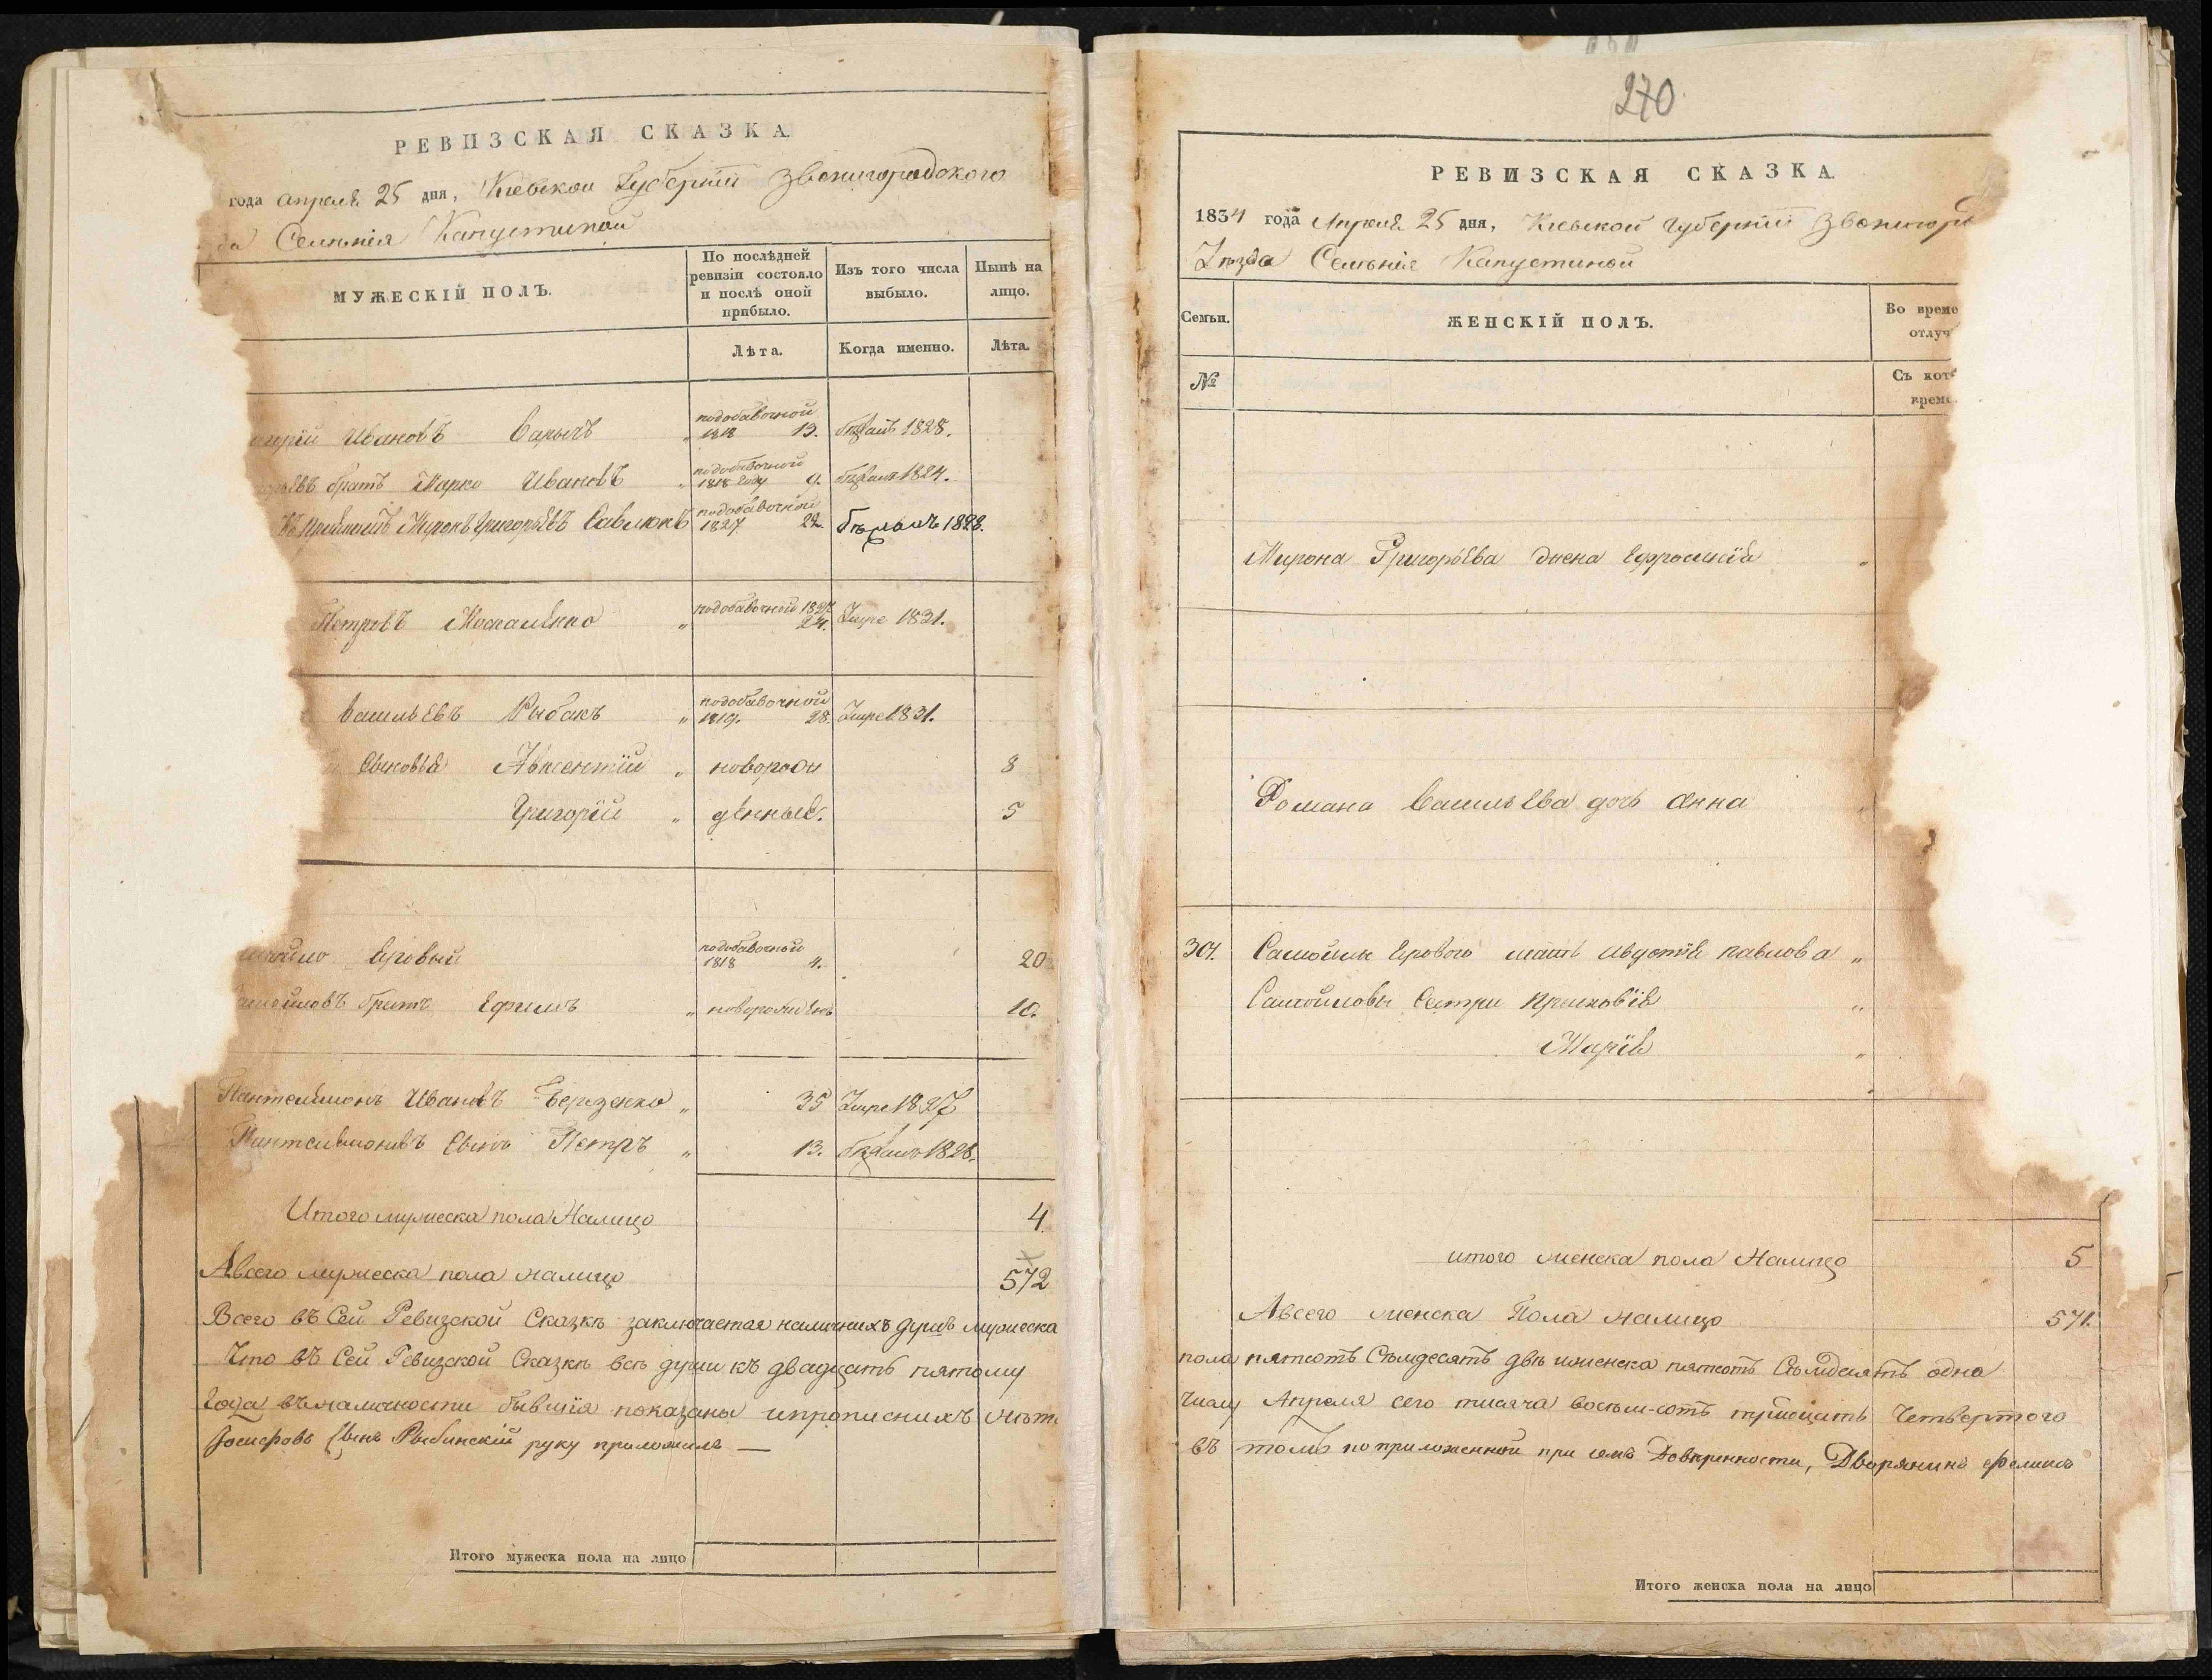 РЕВИЗСКАЯ СКАЗКА
года апреля 25 дня, Киевской Губерніи Звенигородского
да Селенія Капустиной
МУЖЕСКІЙ ПОЛЪ.
По послѣдней ревизіи состояло и послѣ оной прибыло.
Изъ того числа выбыло.
Нынѣ на лицо.
Лѣта.
Когда именно.
Лѣта.
Ивановъ
подобавочной 1818 13.
1828.
братъ Марко Ивановъ
подобавочной 1818 году 9.
1824.
Миронъ Григорьевъ Савлюкъ
подобавочной 1827 22.
бѣжалъ 1828.
Петровъ Москаленко
подобавочной 1827 24.
Умре 1831.
Васильевъ Рыбакъ
подобавочной 1819. 28.
Умре 1831.
Сыновья Авксентій
новорож
8
Григорій
денные.
5
Яровый
подобавочный 1818 4.
20
Самойловъ братъ Ефимъ
новорожденъ
10.
Пантелимонъ Ивановъ Березенко
35
Умре 1827
Пантелимоновъ Сынъ Петръ
13.
бѣжалъ 1828.
Итого мужеска пола Налицо
4
Авсего мужеска пола налицо
572
Всего въ Сей Ревизской Сказкѣ заключается наличныхъ душъ мужеска
Что въ Сей Ревизской Сказкѣ всѣ души къ двадцать пятому
Года въ наличности бывшія показаны ипрописнихъ нѣтъ
Іосифовъ Сынъ Рыбинскій руку приложилъ —
Итого мужеска пола на лицо
270
РЕВИЗСКАЯ СКАЗКА.
1834 года Апреля 25 дня, Киевской Губерніи Звенигоро
Уѣзда Селенія Капустиной
Семьи.
ЖЕНСКІЙ ПОЛЪ.
Во време отлуч
№
Съ кото време
Мирона Григорьева жена Ефросинія
Романа Васильева дочь Анна
304.
Самойла Ярового мать Авдотія Павлова
Самойловы Сестри Присковія
Марія
итого женска пола Налицо
5
Авсего женска Пола налицо
571.
пола пятьсотъ Сѣмдесятъ двѣ иженска пятьсотъ Сѣмдесятъ одна
числу Апреля сего тисяча восемь-сотъ тридцать Четвертого
въ томъ по приложенной при семъ Довѣренности, Дворянинъ Феликсъ
Итого женска пола на лицо